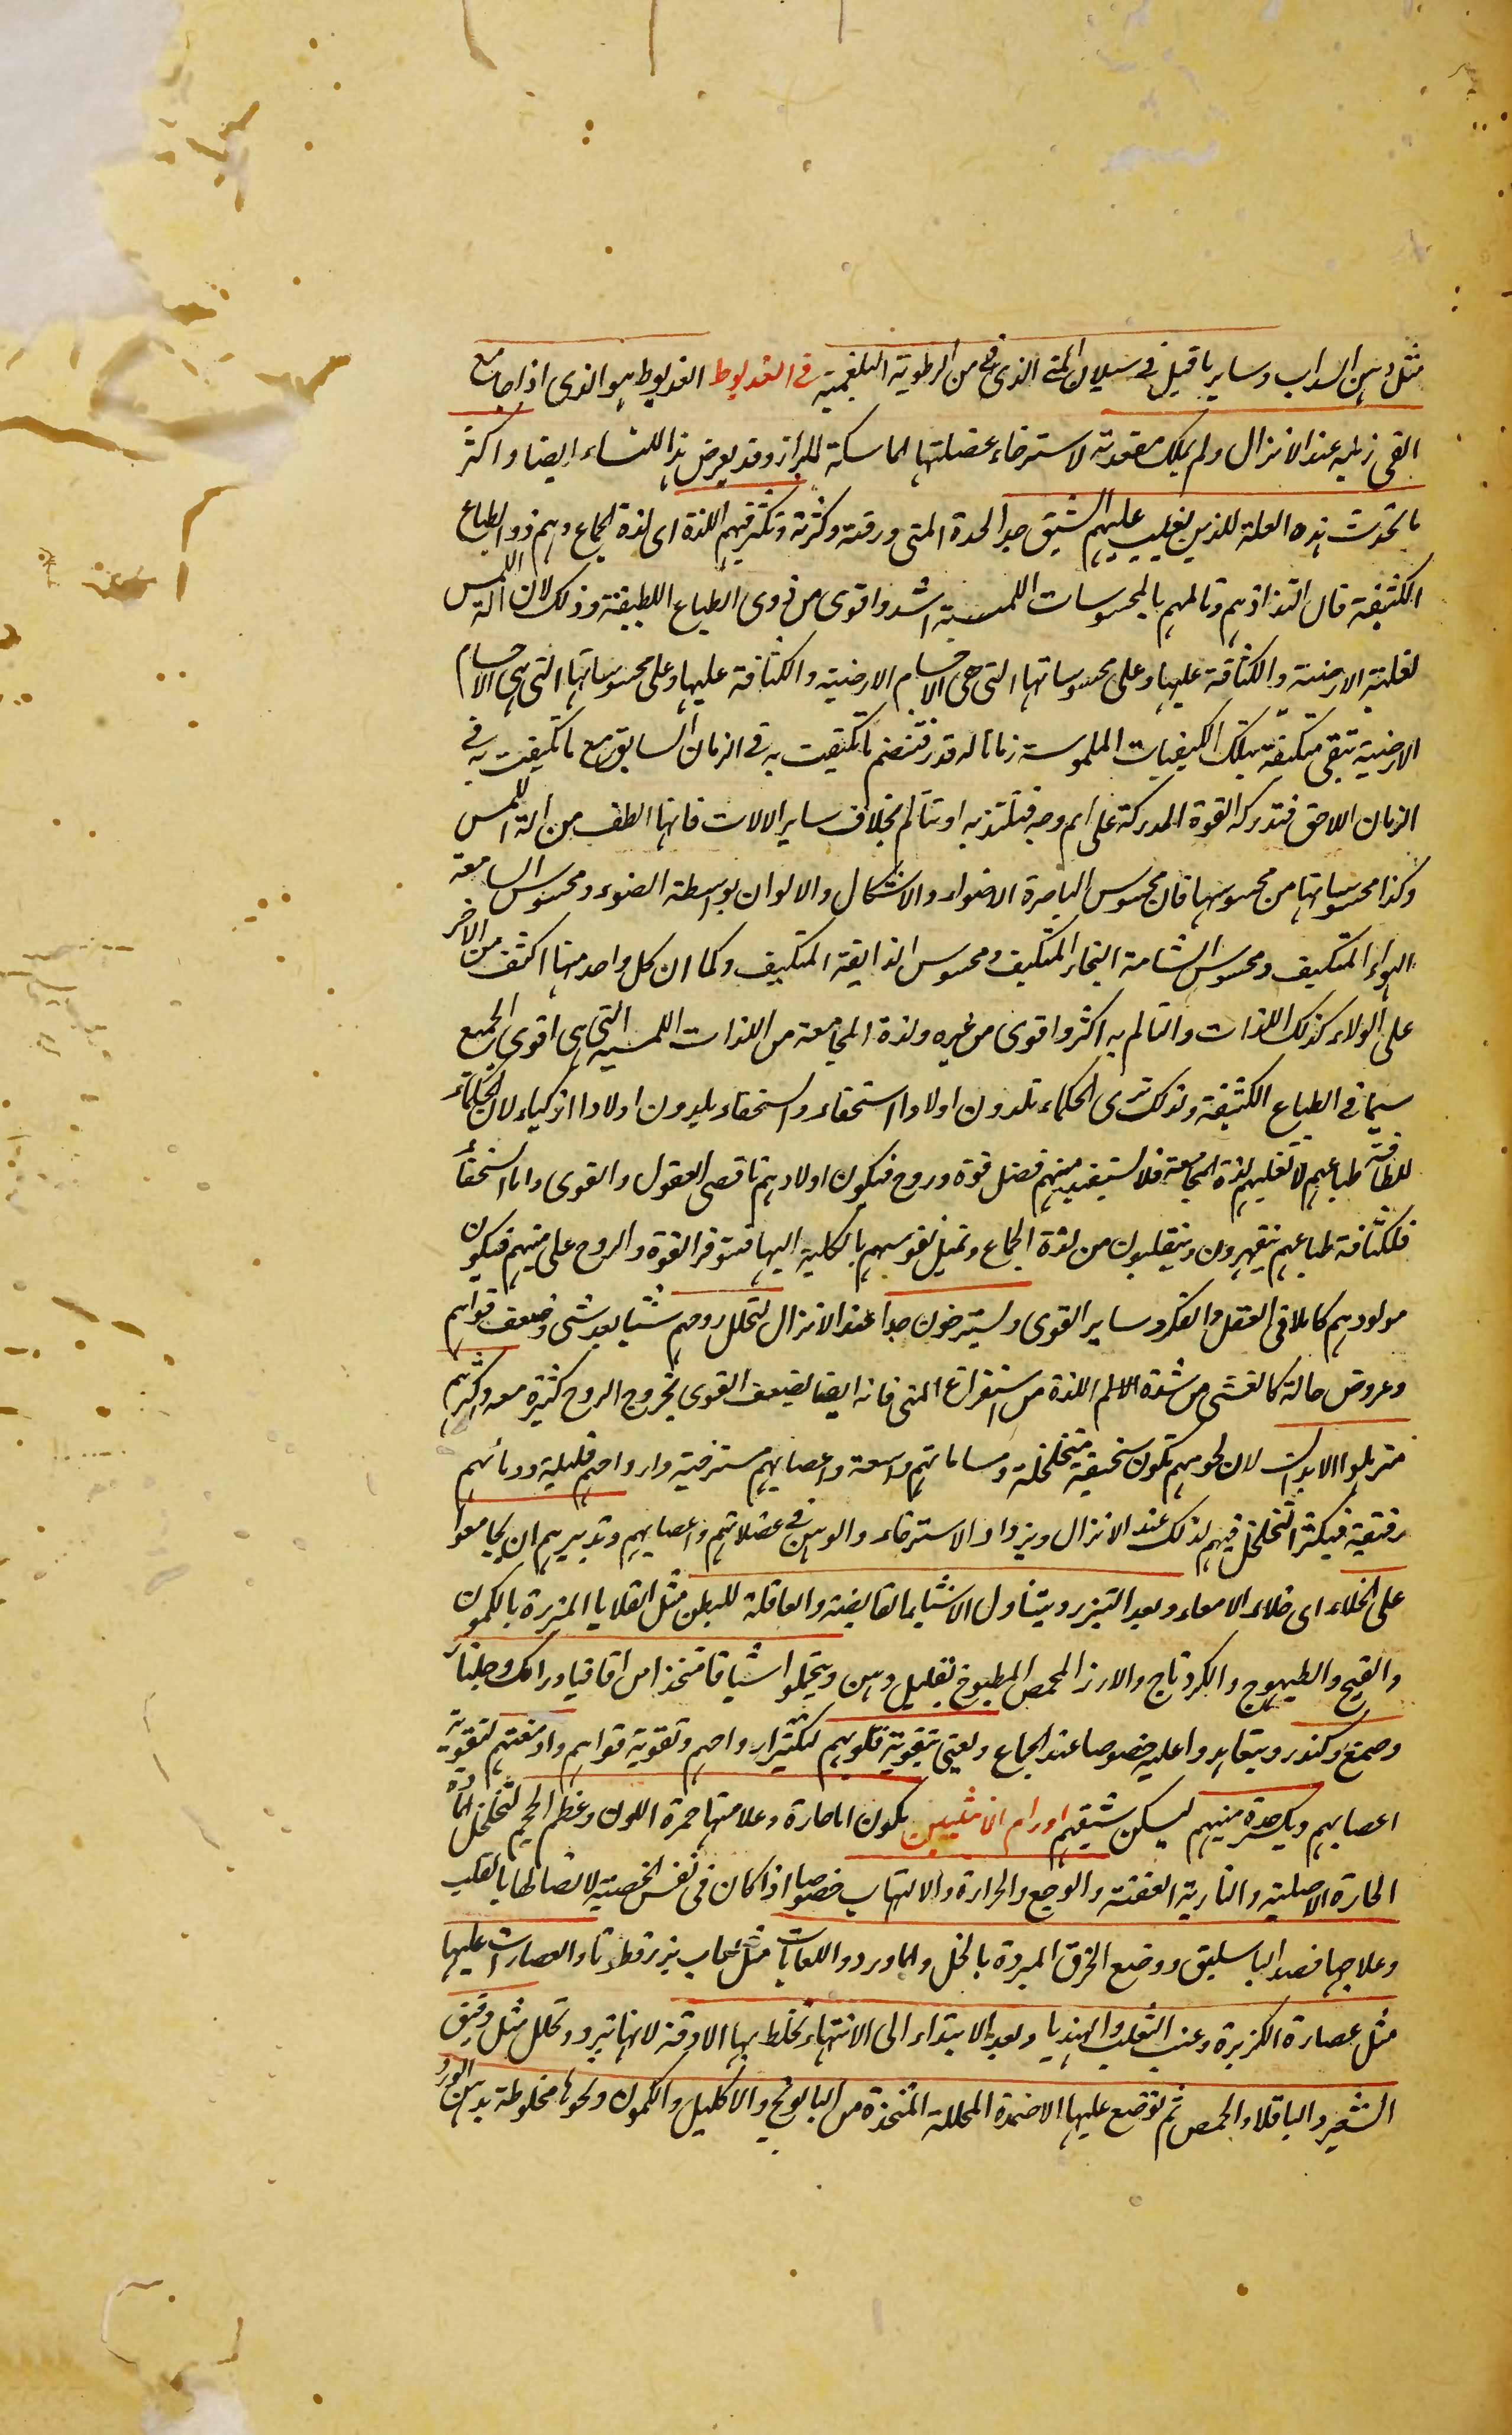 مثل دهن السداب وساير ما قيل فى سيلان المنى الذى هو من الرطوبة البلغمية فى العذيوط العذيوط هو الذى اذا جامع
القى زبله عند الانزال ولم يملك مقعدته لاسترخاء عضلتها الماسكة للبراز وقد يعرض هذا للنساء ايضا واكثر
ما تحدث هذه العلة للذين يغلب عليهم الشبق جدا لحدة المنى ورقته وكثرته وتكثر فيهم اللذة اى لذة الجماع وهم ذووا الطباع
الكثيفة فان التذاذهم وتالمهم بالمحسوسات اللمسية اشد واقوى من ذوى الطباع اللطيفة وذلك لان آلة اللمس
لغلبة الارضية والكثافة عليها وعلى محسوساتها التى هى الاجسام الارضية والكثافة عليها وعلى محسوساتها التى هى الاجسام
الارضية تبقى متكيفة بتلك الكيفيات الملموسة زمانا له قدر فتنضم ما تكيفت به فى الزمان السابق مع ما تكيفت به فى
الزمان اللاحق فتدركه القوة المدركة على اتم وجه فتلتذ به او تتالم بخلاف ساير الالات فانها الطف من الة اللمس
وكذا محسوساتها من محسوسها فان محسوس الباصرة الاضواء والاشكال والالوان بواسطة الضوء ومحسوس السامعة
الهواء المتكيف ومحسوس الشامة البخار المتكيف ومحسوس الذايقة المتكيف وكما ان كل واحد منها اكثف من الاخر
على الولاء كذلك اللذات والتالم به اكثر واقوى من غيره ولذة المجامعة من اللذات اللمسية التى هى اقوى الجميع
سيما فى الطباع الكثيفة ولذلك ترى الحكماء تلدون اولادا سخفاء والسخفاء يلدون اولادا اذكياء لان الحكماء
للطافة طباعهم لا تغلبهم لذة المجامعة فلا يستفيد منيهم فضل قوة وروح فيكون اولادهم ناقصى العقول والقوى واما السخفاء
فلكثافة طباعهم ينقهرون وينقلبون من لذة الجماع وتميل نفوسهم بالكلية اليها فتتوفر القوة والروح على منيهم فيكون
مولودهم كاملا فى العقل والفكر وساير القوى ويسترخون جدا عند الانزال لتحلل روحهم شيئا بعد شئ وضعف قواهم
وعروض حالة كالغشى من شدة الالم اللذة من استفراغ المنى فانه ايضا يضعف القوى بخروج الروح كثيرة معه واكثرهم
متربلوا الابدان لان لحومهم تكون سخيفة متخلخلة ومساماتهم واسعة واعصابهم مسترخية وارواحهم قليلة ودمائهم
رقيقة فيكثر التخلخل فيهم لذلك عند الانزال ويزداد الاسترخاء والوهن فى عضلاتهم واعصابهم وتدبيرهم ان يجامعوا
على الخلاء اى خلاء الامعاء وبعد التبرز ويتناول الاشياء القابضة والعاقلة للبطن مثل القلايا المبزرة بالكمون
والقبج والطيهوج والكردناج والارز المحمص المطبوخ بقليل دهن ويتحملوا شيافا متخذا من اقاقيا ورامك وجلنار
وصمغ وكندر ويتعاهدوا عليه خصوصا عند الجماع ويعنى بتقوية قلوبهم لتكثير ارواحهم وتقوية قواهم وادمغتهم لتقوية
اعصابهم ويكسر حدة منيهم ليسكن شبقهم اورام الانثيين تكون اما حارة وعلامتها حمرة اللون وعظم الحجم لتخلخل المادة
الحارة الاصلية والنارية العفنة والوجع والحرارة والالتهاب خصوصا اذا كان فى نفس الخصية لاتصالها بالقلب
وعلاجها فصد الباسليق ووضع الخرق المبردة بالخل والماورد واللعابات مثل لعاب بزرقطونا والعصارات عليها
مثل عصارة الكزبرة وعنب الثعلب والهندبا وبعد الابتداء الى الانتهاء تخلط بها الادقة لانها تبرد وتحلل مثل دقيق
الشعير والباقلا والحمص ثم توضع عليها الاضمدة المحللة المتخذة من البابونج والاكليل والكمون ونحوها مخلوطة بدهن الورد